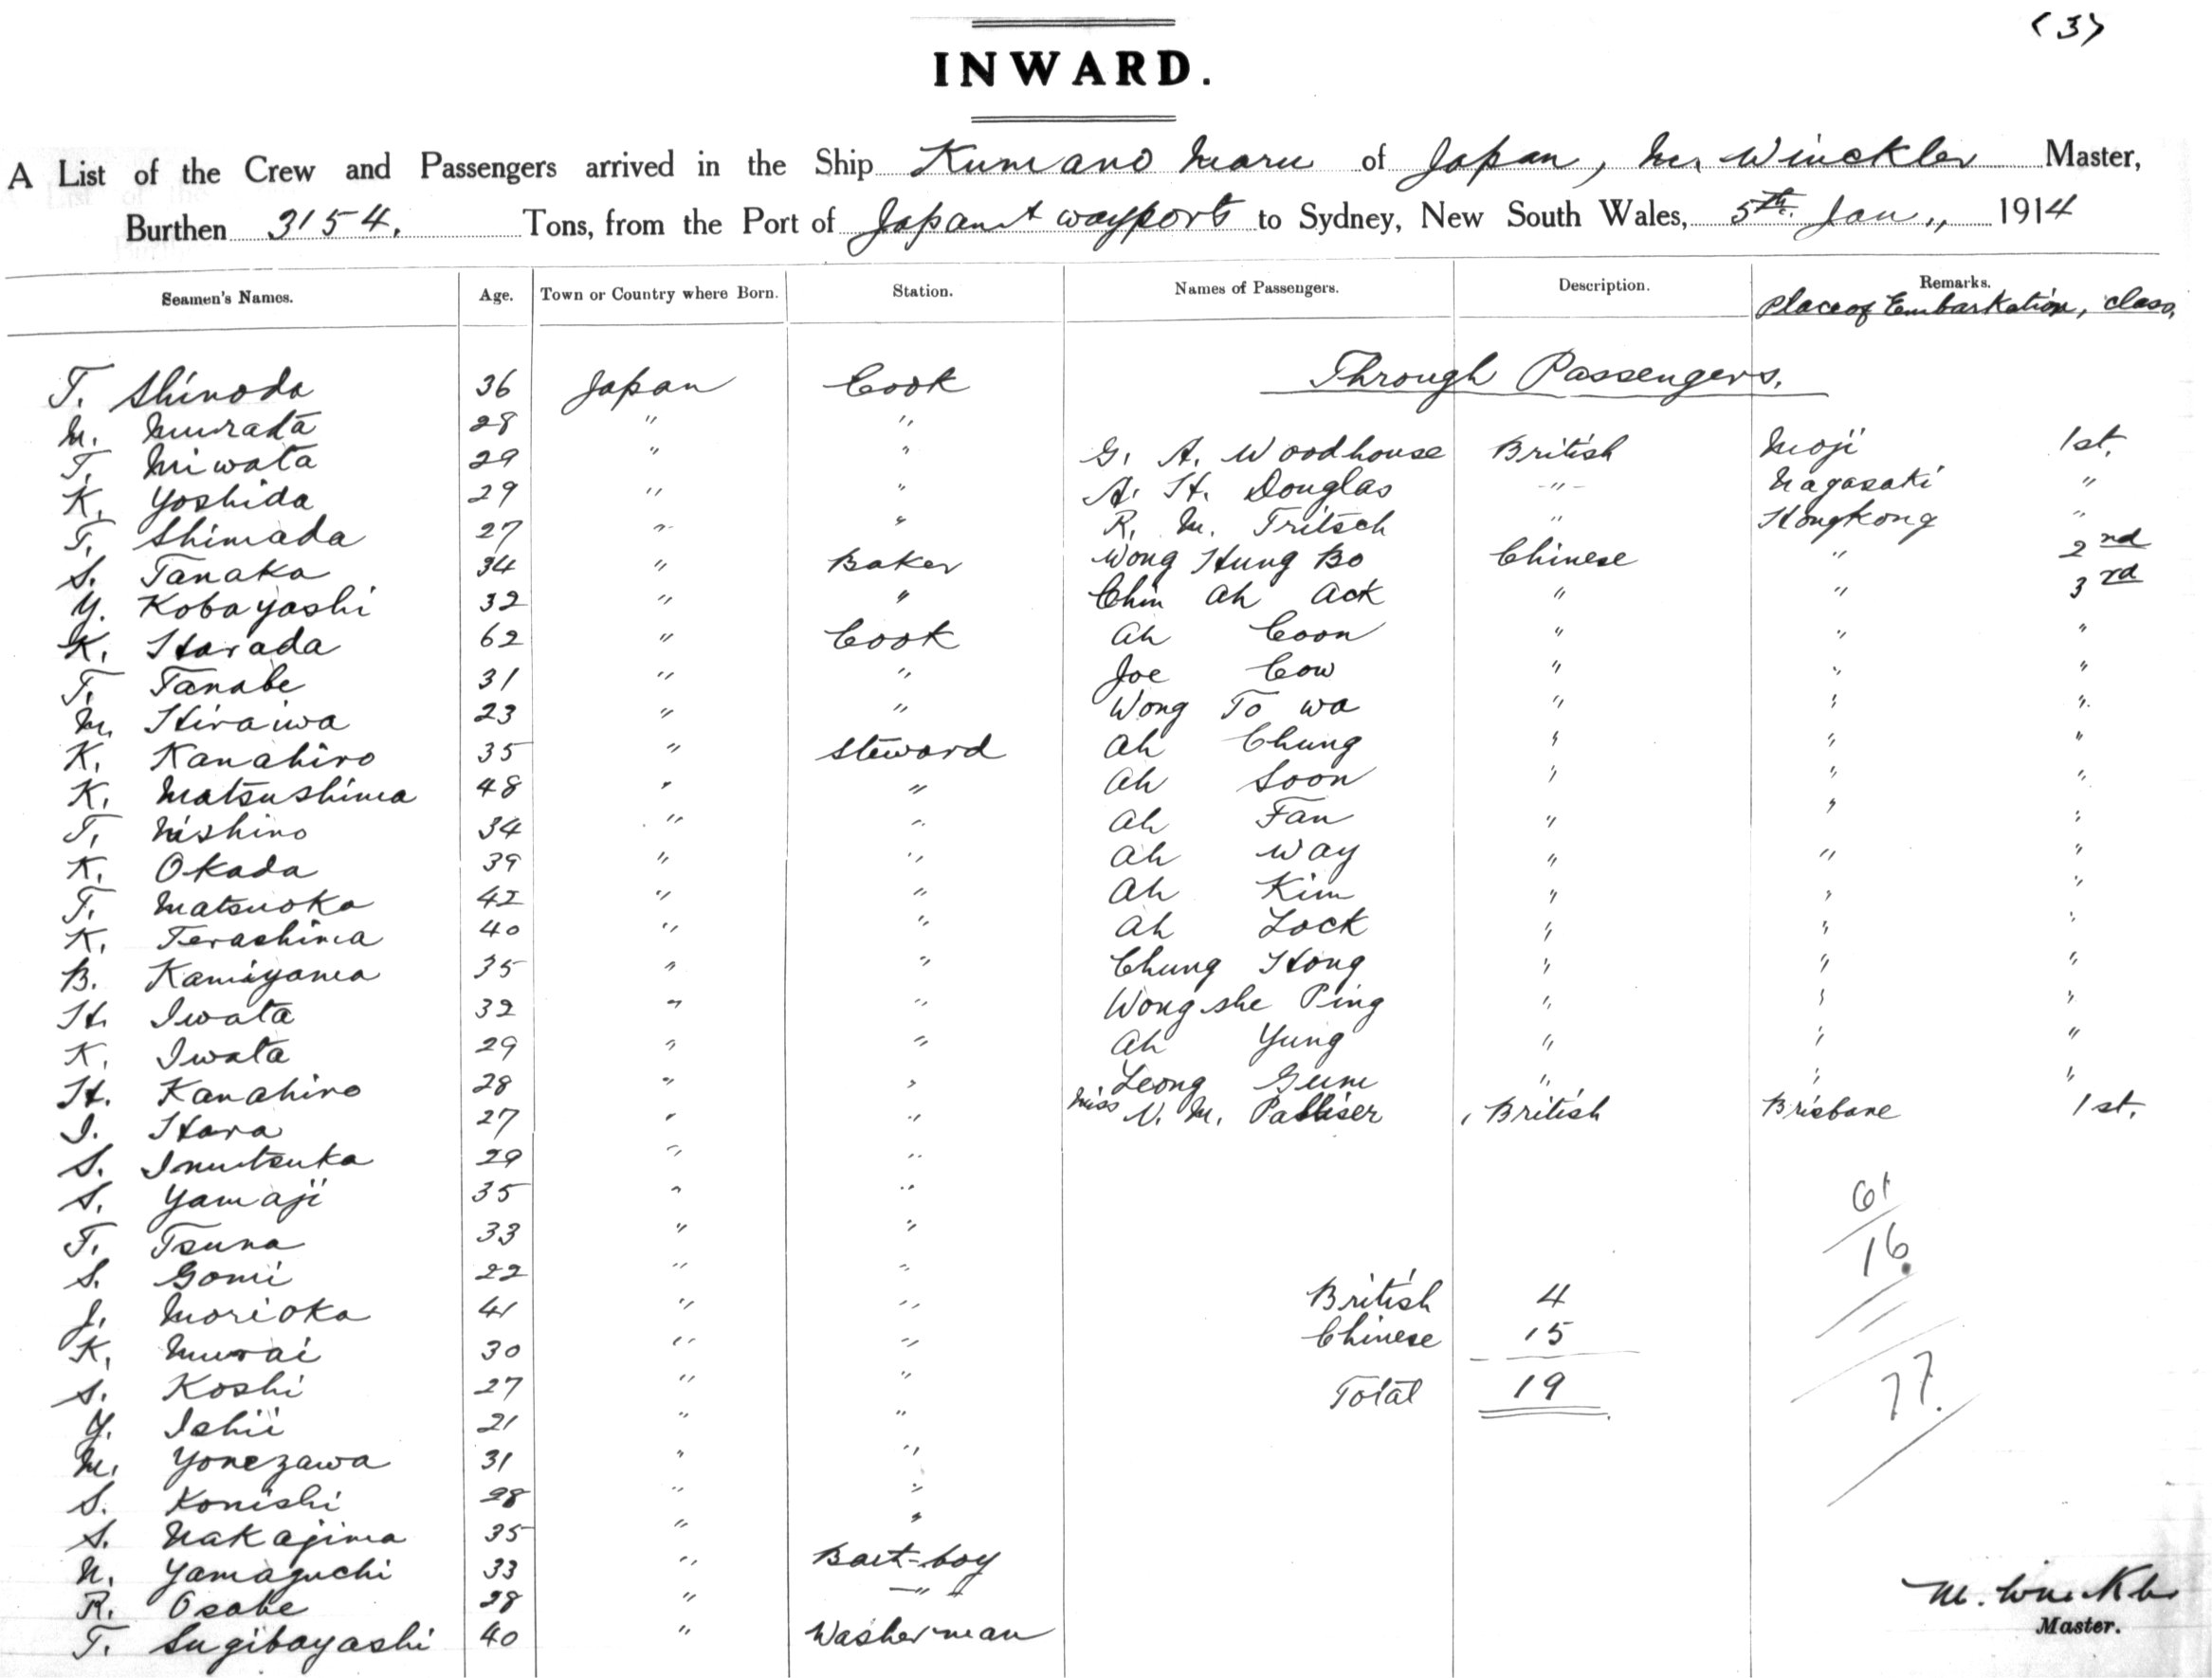 (3)
INWARD.
A List of the Crew and Passengers arrived in the Ship Kumano Maru of Japan, M. Winckler Master,
Burthen 3154. Tons, from the Port of Japan & wayports to Sydney, New South Wales, 5th. Jan., 1914
Seamen's Names. Age. Town or Country where Born. Station. Names of Passengers. Description. Remarks.
Place of Embarkation, class,
T. Shinoda 36 Japan Cook Through Passengers.
M. Murata 28 " "
T. Miwata 29 " " G. A. Woodhouse British Moji 1st.
K. Yoshida 29 " " A. H. Douglas " Nagasaki "
T. Shimada 27 " " R. M. Fritsch " Hongkong "
S. Tanaka 34 " Baker Wong Hung Bo Chinese " 2nd
Y. Kobayashi 32 " " Chin Ah Ack " " 3rd
K. Harada 62 " Cook Ah Coon " " "
T. Tanabe 31 " " Joe Cow " " "
M. Hiraiwa 23 " " Wong To Wa " " "
K. Kanahiro 35 " Steward Ah Chung " " "
K. Matsushima 48 " " Ah Soon " " "
T. Nishino 34 " " Ah Fan " " "
K. Okada 39 " " Ah Way " " "
T. Matsuoka 42 " " Ah Kim " " "
K. Terashima 40 " " Ah Lock " " "
B. Kamiyama 35 " " Chung Hong " " "
H. Iwata 32 " " Wong She Ping " " "
K. Iwata 29 " " Ah Yung " " "
H. Kanahiro 28 " " Leong Gum " " "
I. Hara 27 " " Miss N. M. Palliser British Brisbane 1st.
S. Inutsuka 29 " "
S. Yamaji 35 " "
F. Tsuna 33 " "
S. Gomi 22 " "
J. Morioka 41 " "
K. Murai 30 " "
S. Koshi 27 " "
Y. Ishii 21 " "
M. Yonezawa 31 " "
S. Konishi 28 " "
S. Nakajima 35 " "
N. Yamaguchi 33 " Bart-boy
R. Osabe 28 " "
T. Sugibayashi 40 " Washerman
61
16
77.
British 4
Chinese 15
Total 19
M. Winckler
Master.